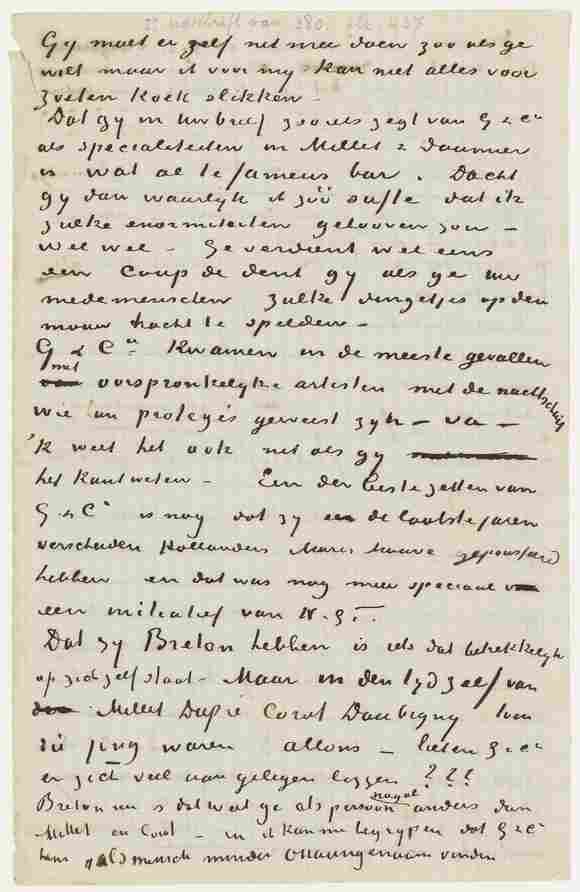 Gy moet er zelf net mee doen zoo als ge
wilt maar ik voor my kan niet alles voor
zoeten koek slikken.
Dat gy in Uw brief zooiets zegt van G & Cie
als specialiteiten in Millet & Daumier
is wat al te fameus bar. Dacht
gy dan waarlyk ik zóó suffe dat ik
zulke enormiteiten gelooven zou –
wel wel – Ge verdient wel eens
een coup de dent gy als ge uw
medemenschen zulke dingetjes op den
mouw tracht te spelden –
G & Cie kwamen in de meeste gevallen
met oorspronkelyke artisten met de nachtschuit
wie hun protegés geweest zyn – va –
'k weet het ook net als gy
het kunt weten – Een der beste zetten van
G & Cie is nog dat zy de laatste jaren
verscheiden Hollanders Maris Mauve gepousseerd
hebben en dat was nog meer speciaal
een initiatief van H.G.T.
Dat zy Breton hebben is iets dat betrekkelyk
op zich zelf staat. Maar in den tyd zelf van
Millet Dupré Corot Daubigny toen
die jong waren allons – lieten G & Cie
er zich veel aan gelegen liggen ???
Breton nu is dat wat ge als persoon nogal anders dan
Millet en Corot – en ik kan me begrypen dat G & Cie
hem als mensch minder onaangenaam vonden